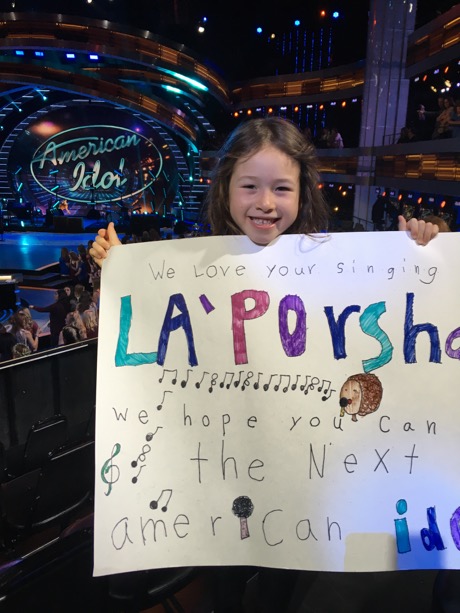 American
Idol
We Love your singing
LA'PORsha
we hope you can
the Next
american ido